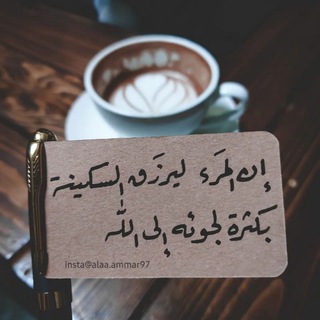 إن المرَء ليرزَق السكينة
بكثرة لجوئه إلى الله
insta@alaa.ammar97